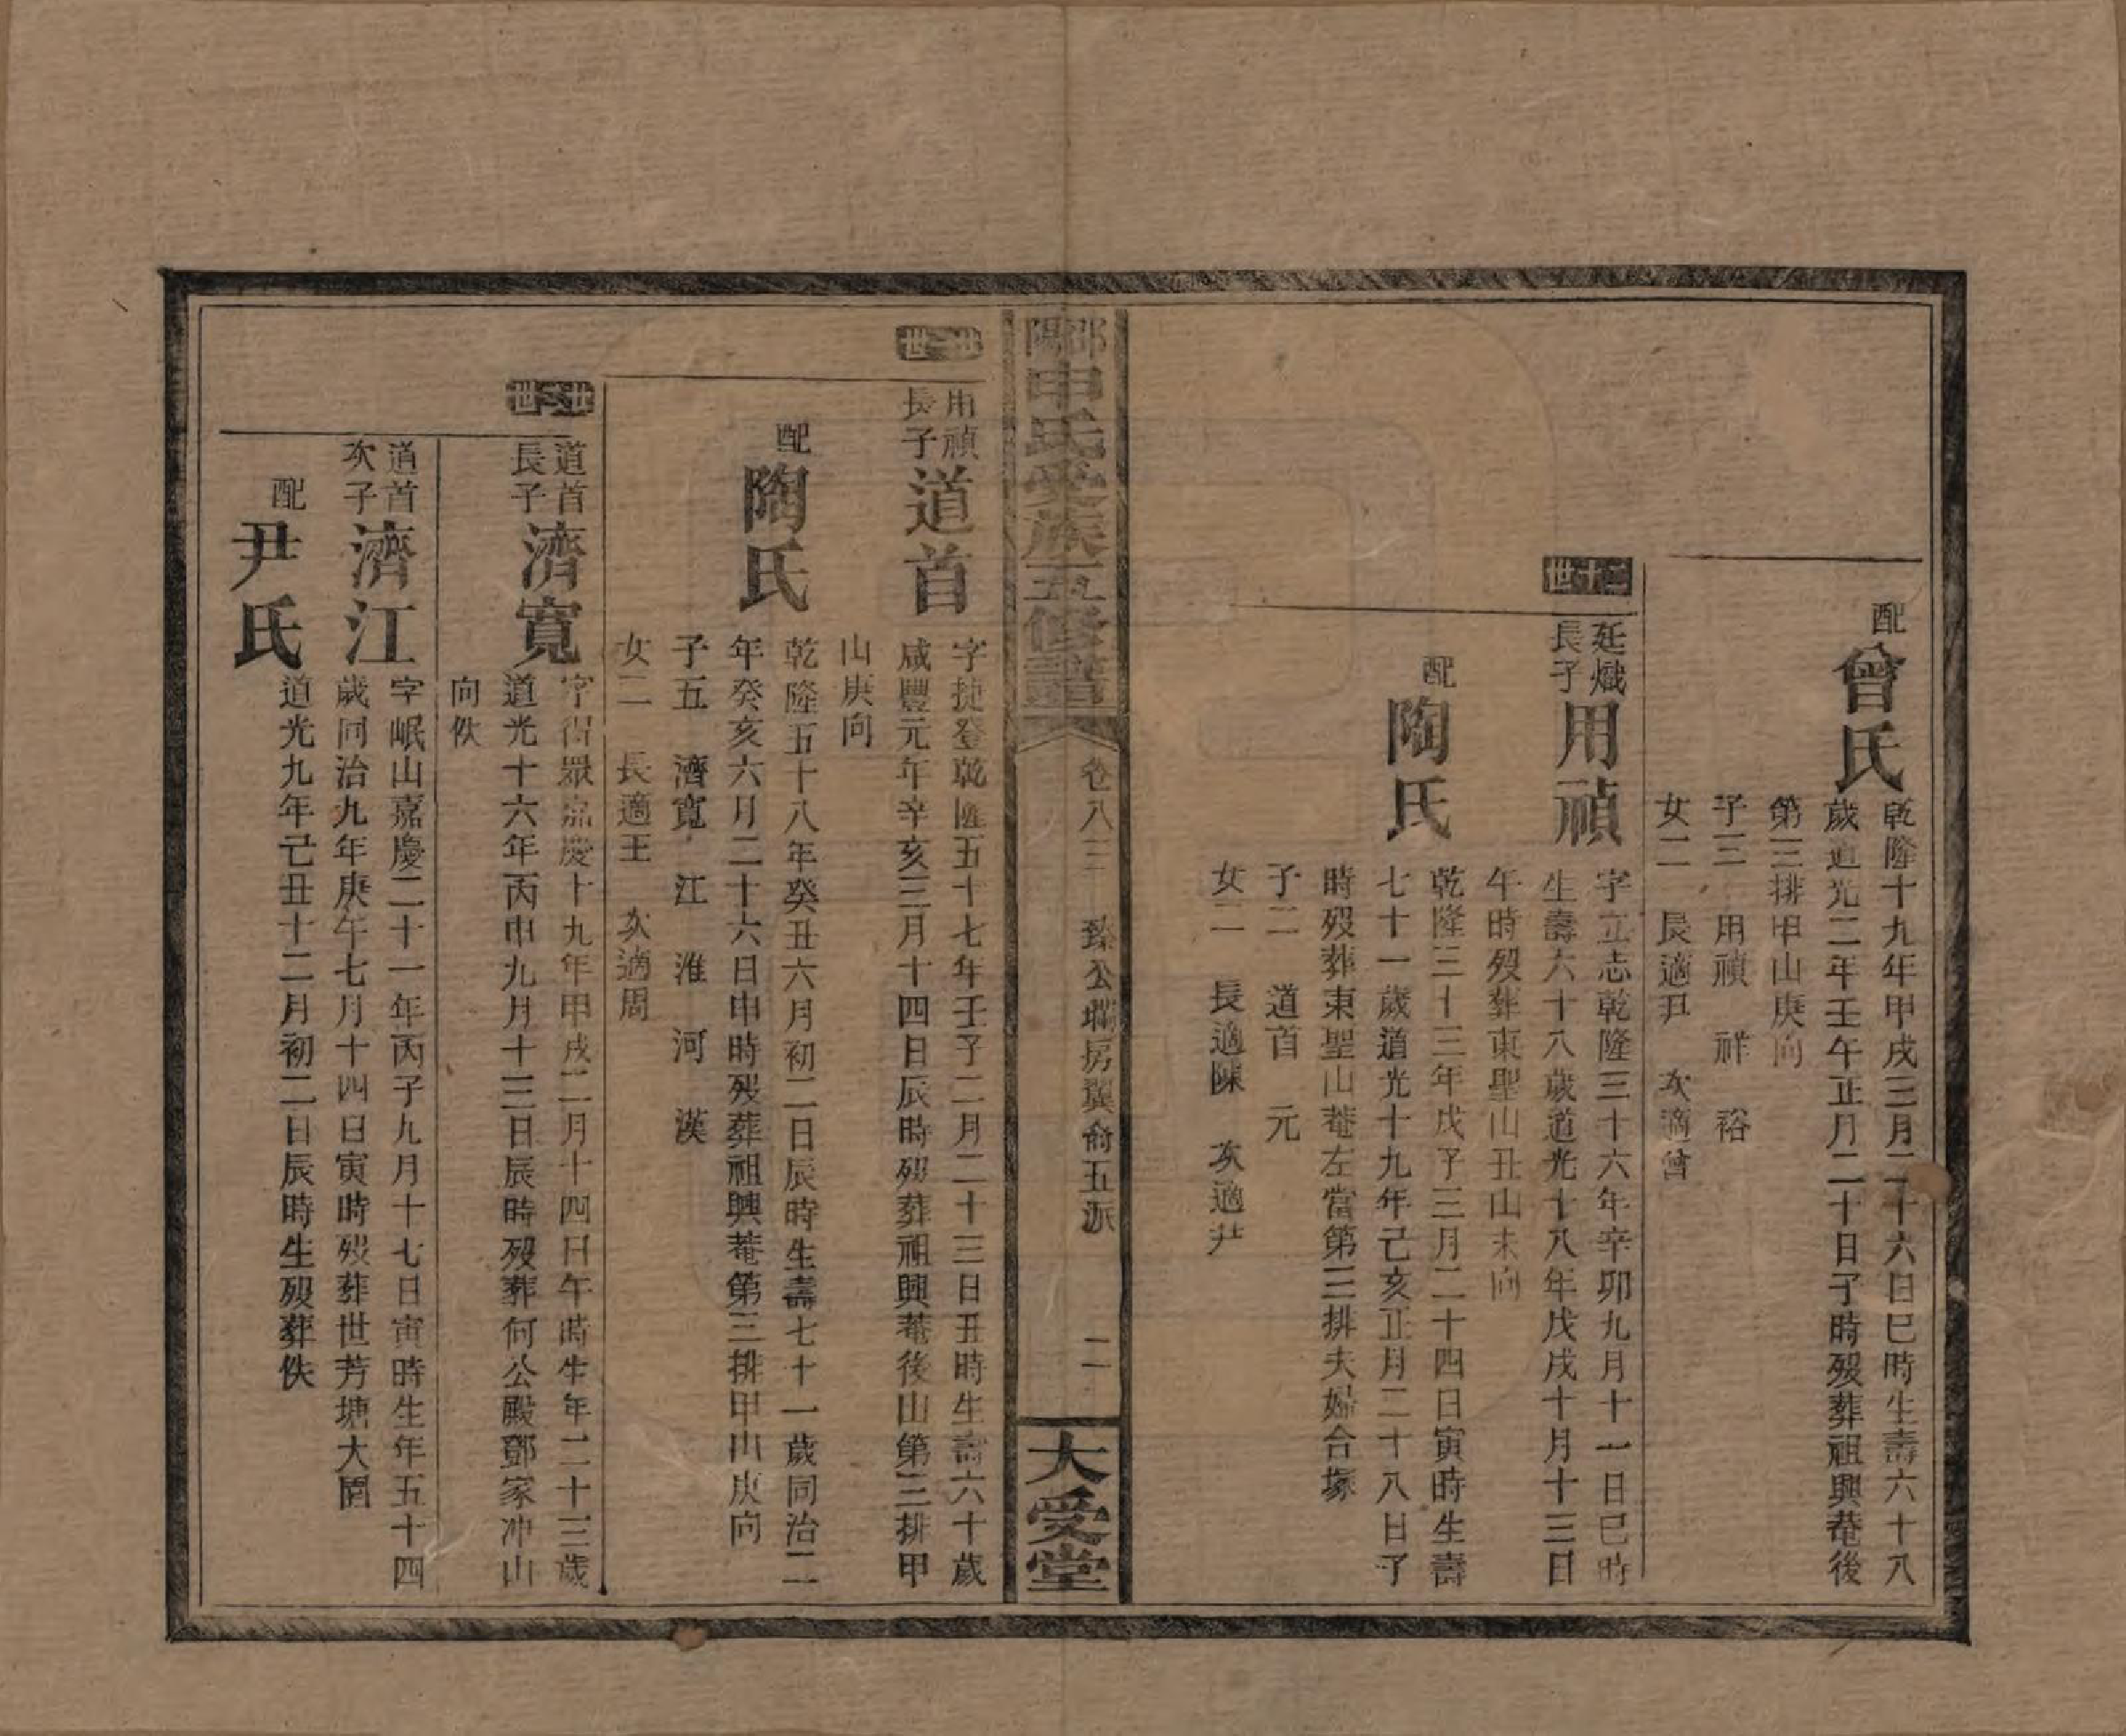 配
曾氏
乾隆十九年甲戌三月二十六日巳時生壽六十八
歲道光二年壬午正月二十日子時歿葬祖興菴後
第三排甲山庚向
子三　用禎　祥　裕
女二　長適尹　次適曾
二十世
廷熾
長子
用禎
字立志乾隆三十六年辛卯九月十一日巳時
生壽六十八歲道光十八年戊戌十月十三日
午時歿葬東聖山丑山未向
配
陶氏
乾隆三十三年戊子三月二十四日寅時生壽
七十一歲道光十九年己亥正月二十八日子
時歿葬東聖山菴左當第三排夫婦合塚
子二　道首　元
女二　長適陳　次適尹
邵陽申氏受族五修譜
卷八三
臻公瓓房翼俞五派
二
大受堂
廿一世
用禎
長子
道首
字捷登乾隆五十七年壬子二月二十三日丑時生壽六十歲
咸豐元年辛亥三月十四日辰時歿葬祖興菴後山第三排甲
山庚向
配
陶氏
乾隆五十八年癸丑六月初二日辰時生壽七十一歲同治二
年癸亥六月二十六日申時歿葬祖興菴第三排甲山庚向
子五　濟寬　江　淮　河　漢
女二　長適王　次適周
廿二世
道首
長子
濟寬
字得眾嘉慶十九年甲戌二月十四日午時生年二十三歲
道光十六年丙申九月十三日辰時歿葬何公殿鄧家冲山
向佚
道首
次子
濟江
字岷山嘉慶二十一年丙子九月十七日寅時生年五十四
歲同治九年庚午七月十四日寅時歿葬世芳塘大園
配
尹氏
道光九年己丑十二月初二日辰時生歿葬佚